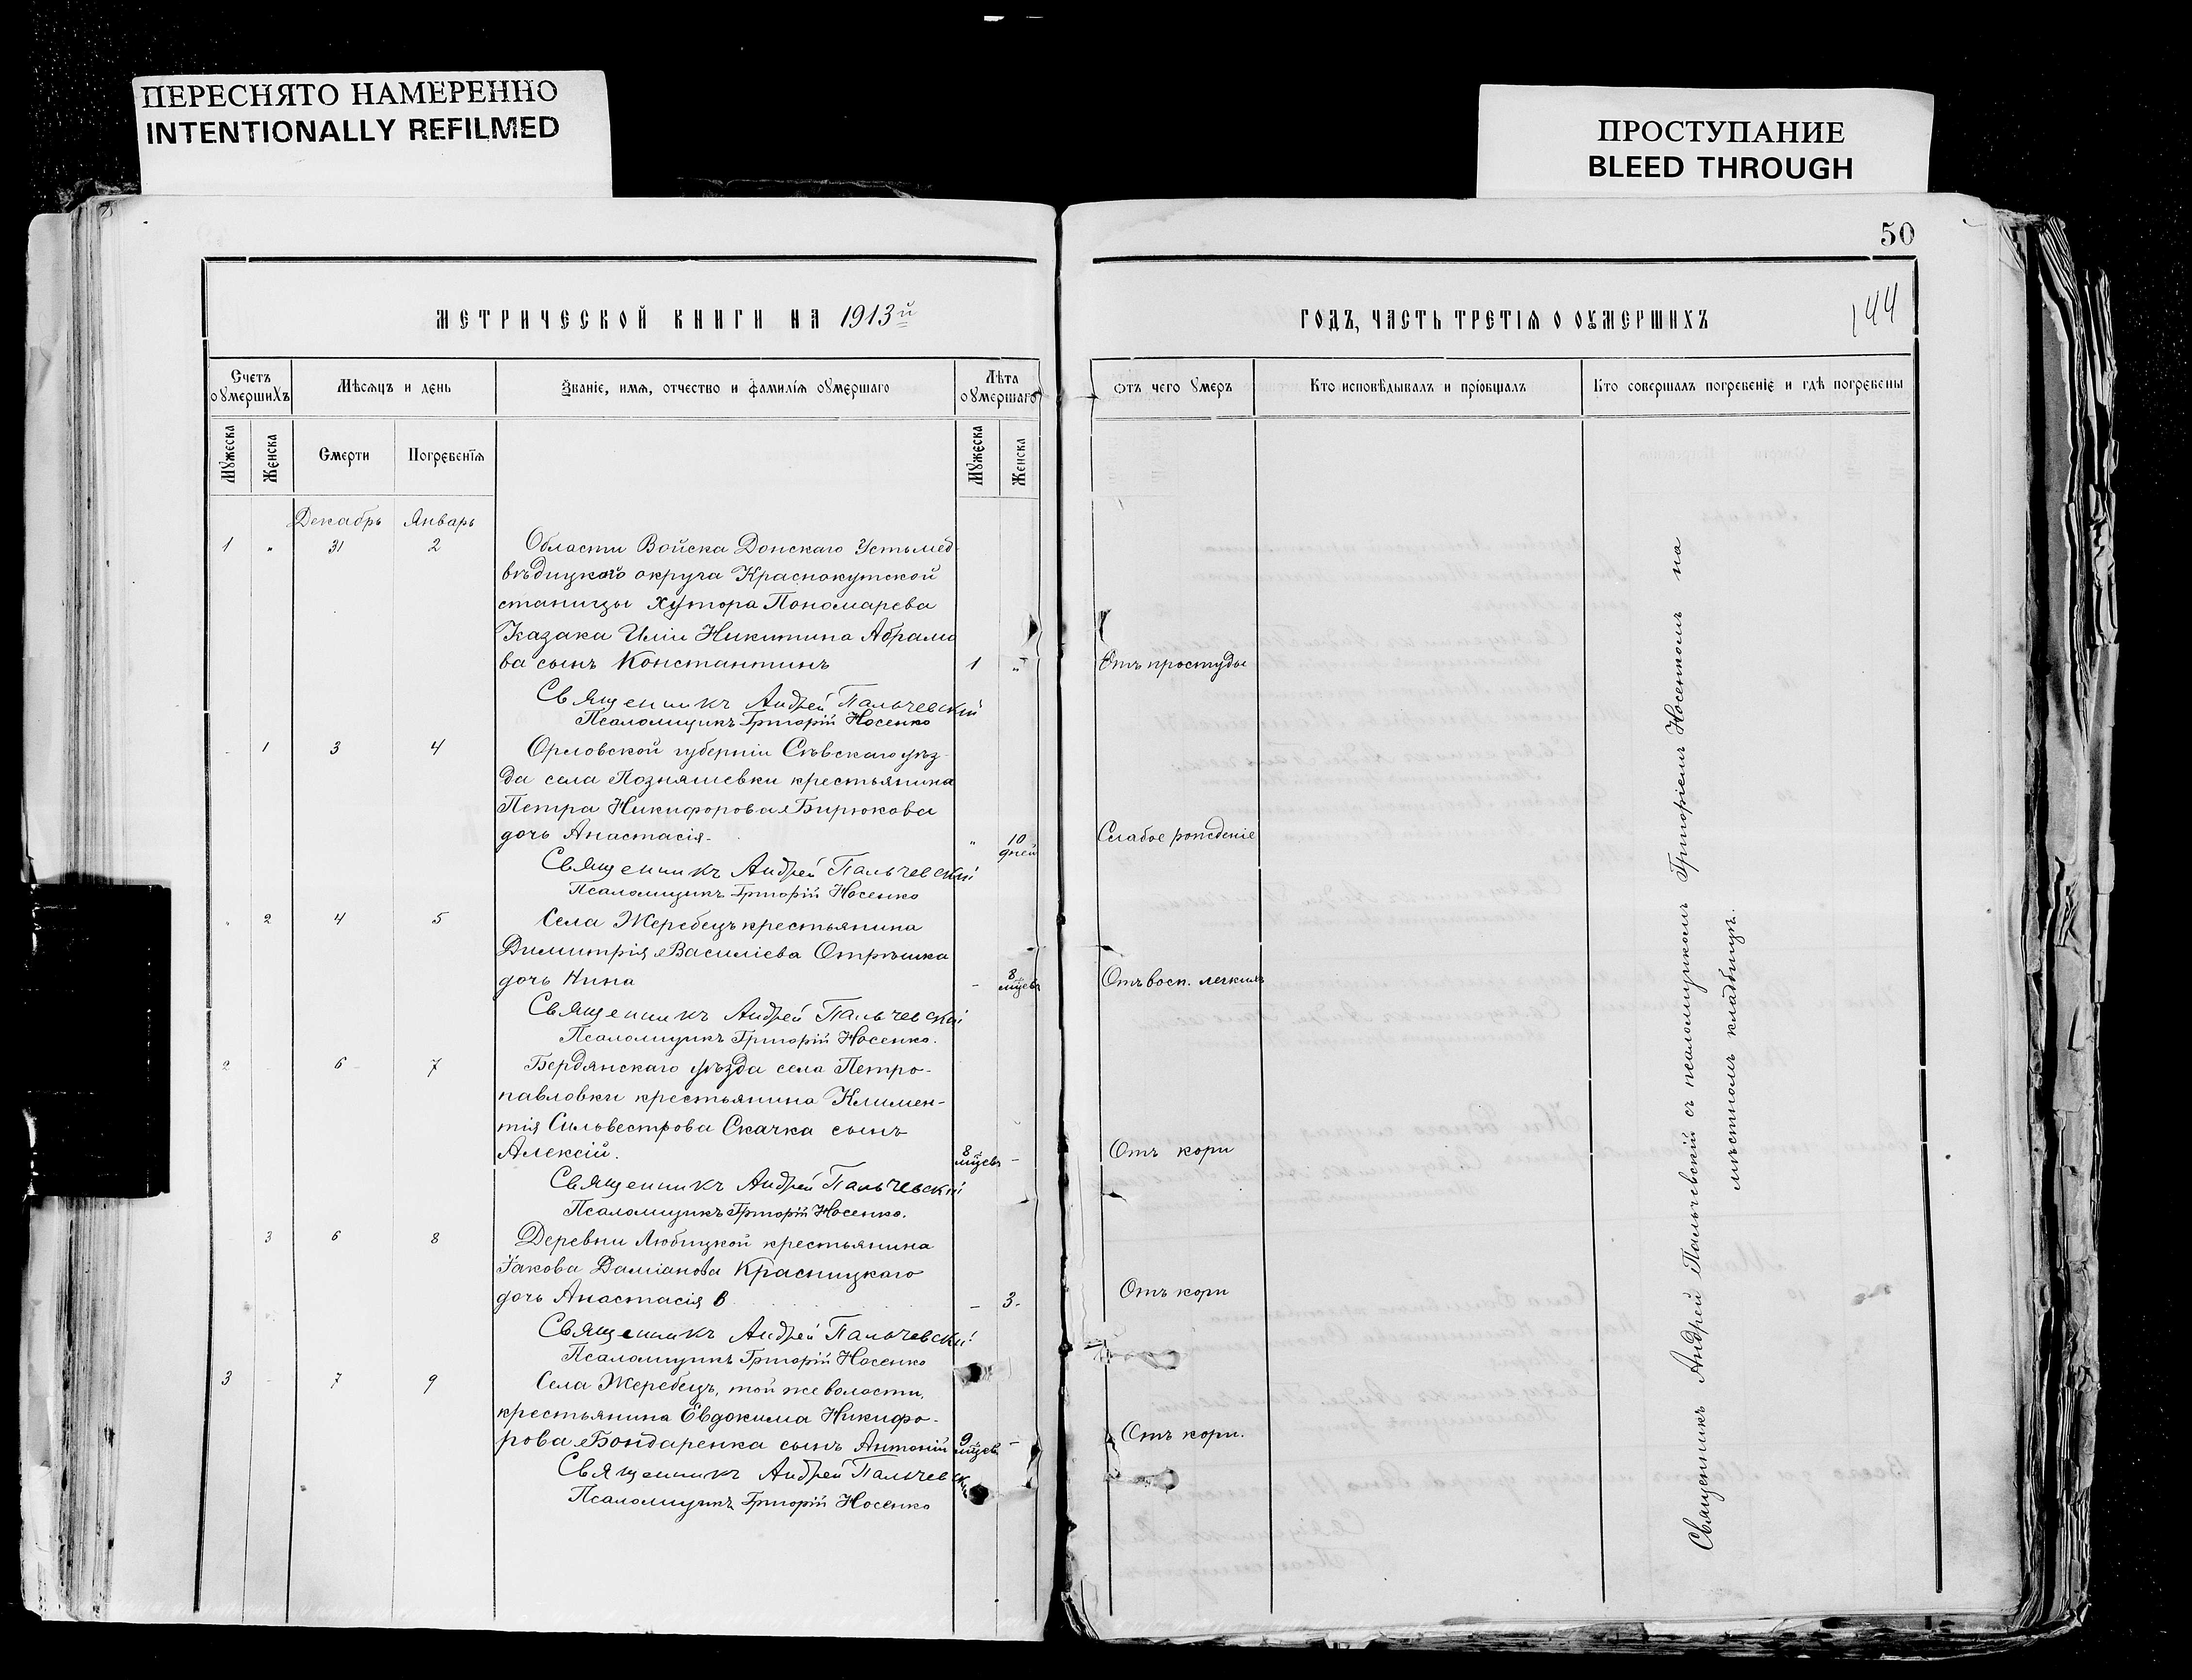 ПЕРЕСНЯТО НАМЕРЕННО
INTENTIONALLY REFILMED
ПРОСТУПАНИЕ
BLEED THROUGH
50
МЕТРИЧЕСКОЙ КНИГИ НА 1913й
ГОДЪ, ЧАСТЬ ТРЕТІЯ О ОУМЕРШИХЪ
144
Счетъ оумершихъ
Мѣсяцъ и день
Званіе, имя, отчество и фамилія оумершаго
Лѣта оумершаго
Отъ чего умеръ
Кто исповѣдывалъ и пріобщалъ
Кто совершалъ погребеніе и гдѣ погребены
Мужеска
Женска
Смерти
Погребенія
Мужеска
Женска
Декабрь Январь
1 „ 31 2 Области Войска Донскаго Устьмед-
вѣдицкого округа Краснокутской
станицы хутора Пономарева
Казака Иліи Никитина Абрамо
ва сынъ Константинъ 1 „ Отъ простуды
Священникъ Андрей Пальчевскій
Псаломщикъ Григорій Носенко
1 3 4 Орловской губерніи Сѣвскаго уѣз-
да села Позняшевки крестьянина
Петра Никифорова Бирюкова
дочь Анастасія „ 10 дней Слабое рожденіе
Священникъ Андрей Пальчевскій
Псаломщикъ Григорій Носенко
2 4 5 Села Жеребецъ крестьянина
Димитрія Василіева Отрѣшка
дочь Нина - 8 мцевъ Отъ восп. легкихъ
Священникъ Андрей Пальчевскій
Псаломщикъ Григорій Носенко.
2 6 7 Бердянскаго уѣзда села Петро-
павловки крестьянина Климен-
тія Сильвестрова Скачка сынъ
Алексій. 8 мцевъ - Отъ кори
Священникъ Андрей Пальчевскій
Псаломщикъ Григорій Носенко.
3 6 8 Деревни Любицкой крестьянина
Іакова Даміанова Красницкаго
дочь Анастасія - 3. Отъ кори
Священникъ Андрей Пальчевскій
Псаломщикъ Григорій Носенко
3 - 7 9 Села Жеребецъ, той же волости,
крестьянина Евдокима Никифо-
рова Бондаренка сынъ Антоній 9 мцевъ - Отъ кори.
Священникъ Андрей Пальчевскій
Псаломщикъ Григорій Носенко
Священникъ Андрей Пальчевскій съ псаломщикомъ Григоріемъ Носенкомъ на
мѣстномъ кладбищѣ.